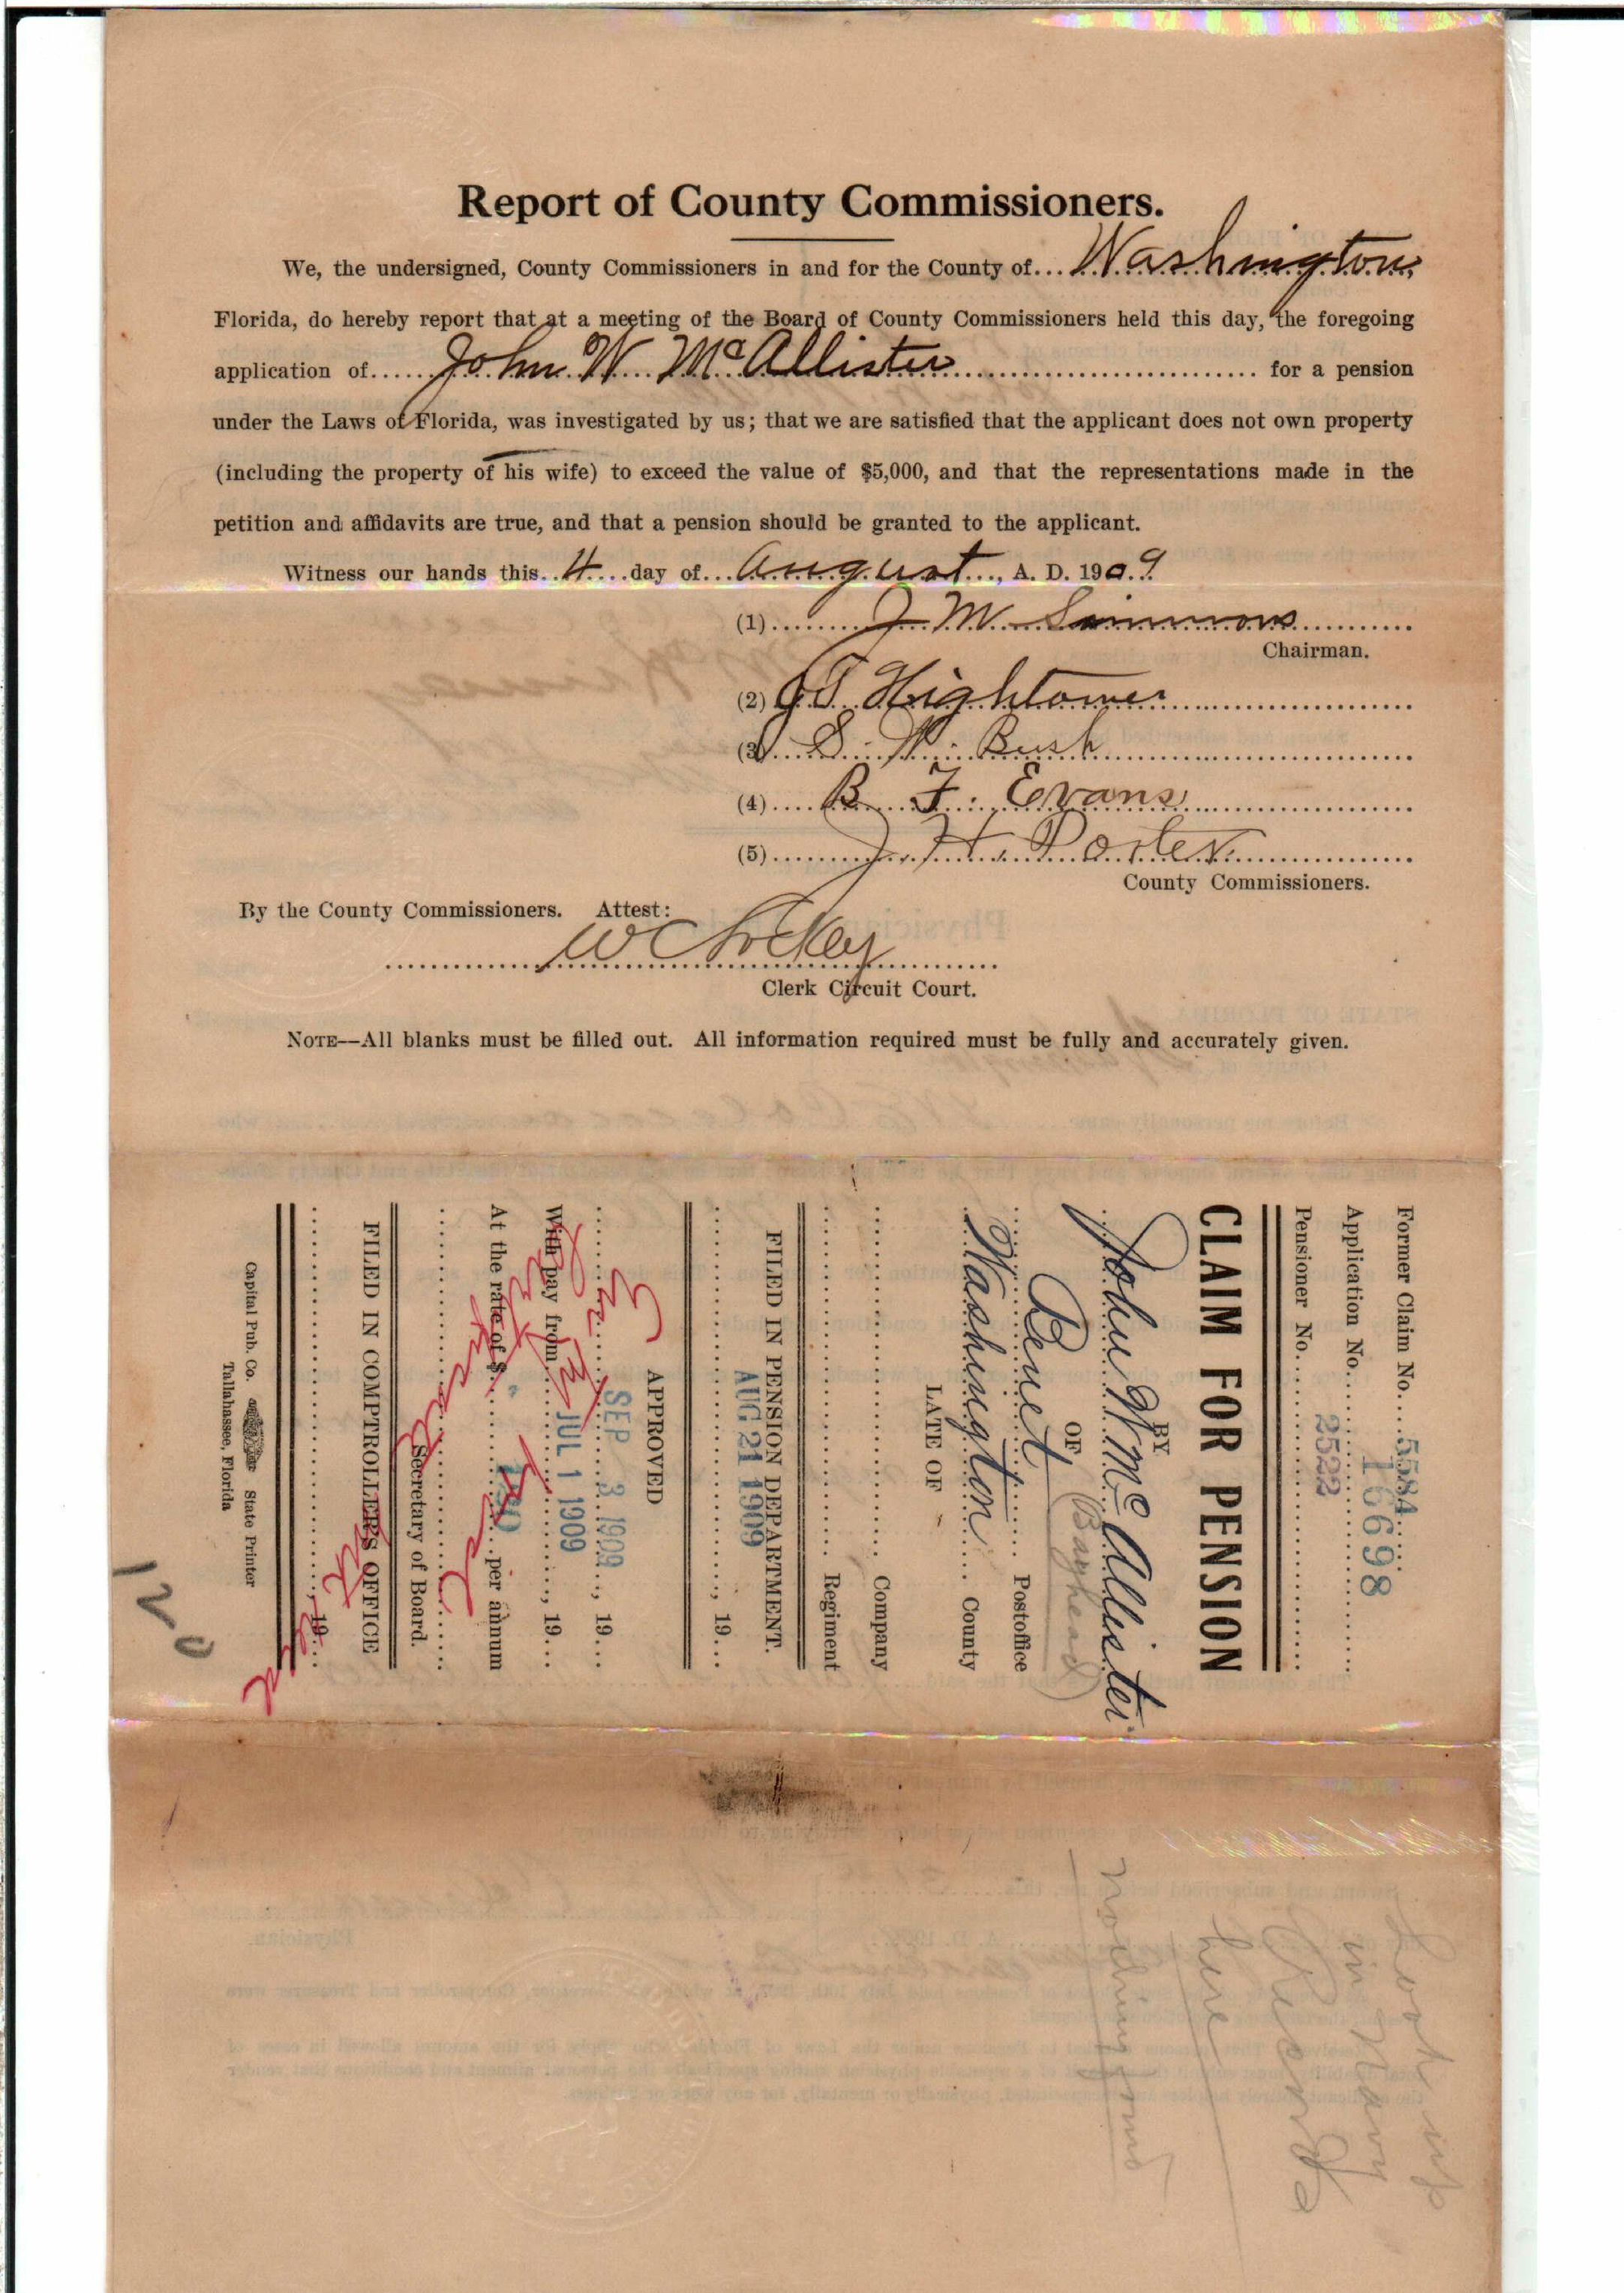 Report of County Commissioners.
We, the undersigned, County Commissioners in and for the County of... Washington
Florida, do hereby report that at a meeting of the Board of County Commissioners held this day, the foregoing
application of...... John W. McAllister ...... for a pension
under the Laws of Florida, was investigated by us; that we are satisfied that the applicant does not own property
(including the property of his wife) to exceed the value of $5,000, and that the representations made in the
petition and affidavits are true, and that a pension should be granted to the applicant.
Witness our hands this..4....day of... August ..., A. D. 1909
(1) J. M. Simmons
Chairman.
(2) J T Hightower
(3) S. W. Bush
(4) B. F. Evans
(5) J. H. Porter
County Commissioners.
By the County Commissioners. Attest:
W C Lockey
Clerk Circuit Court.
NOTE—All blanks must be filled out. All information required must be fully and accurately given.
Former Claim No.... 5584
Application No.... 16698
Pensioner No.... 2522
CLAIM FOR PENSION
BY
John W McAllister
OF
Benet (Bayhead)
Postoffice
Washington County
LATE OF
Company
Regiment
FILED IN PENSION DEPARTMENT.
AUG 21 1909 , 19...
APPROVED
SEP 3 1909 , 19...
With pay from JUL 1 1909 , 19...
At the rate of $ 120 per annum
Secretary of Board.
FILED IN COMPTROLLER'S OFFICE
, 19...
Capital Pub. Co. State Printer
Tallahassee, Florida
120
Look up
in Navy
Records
here
nothing found